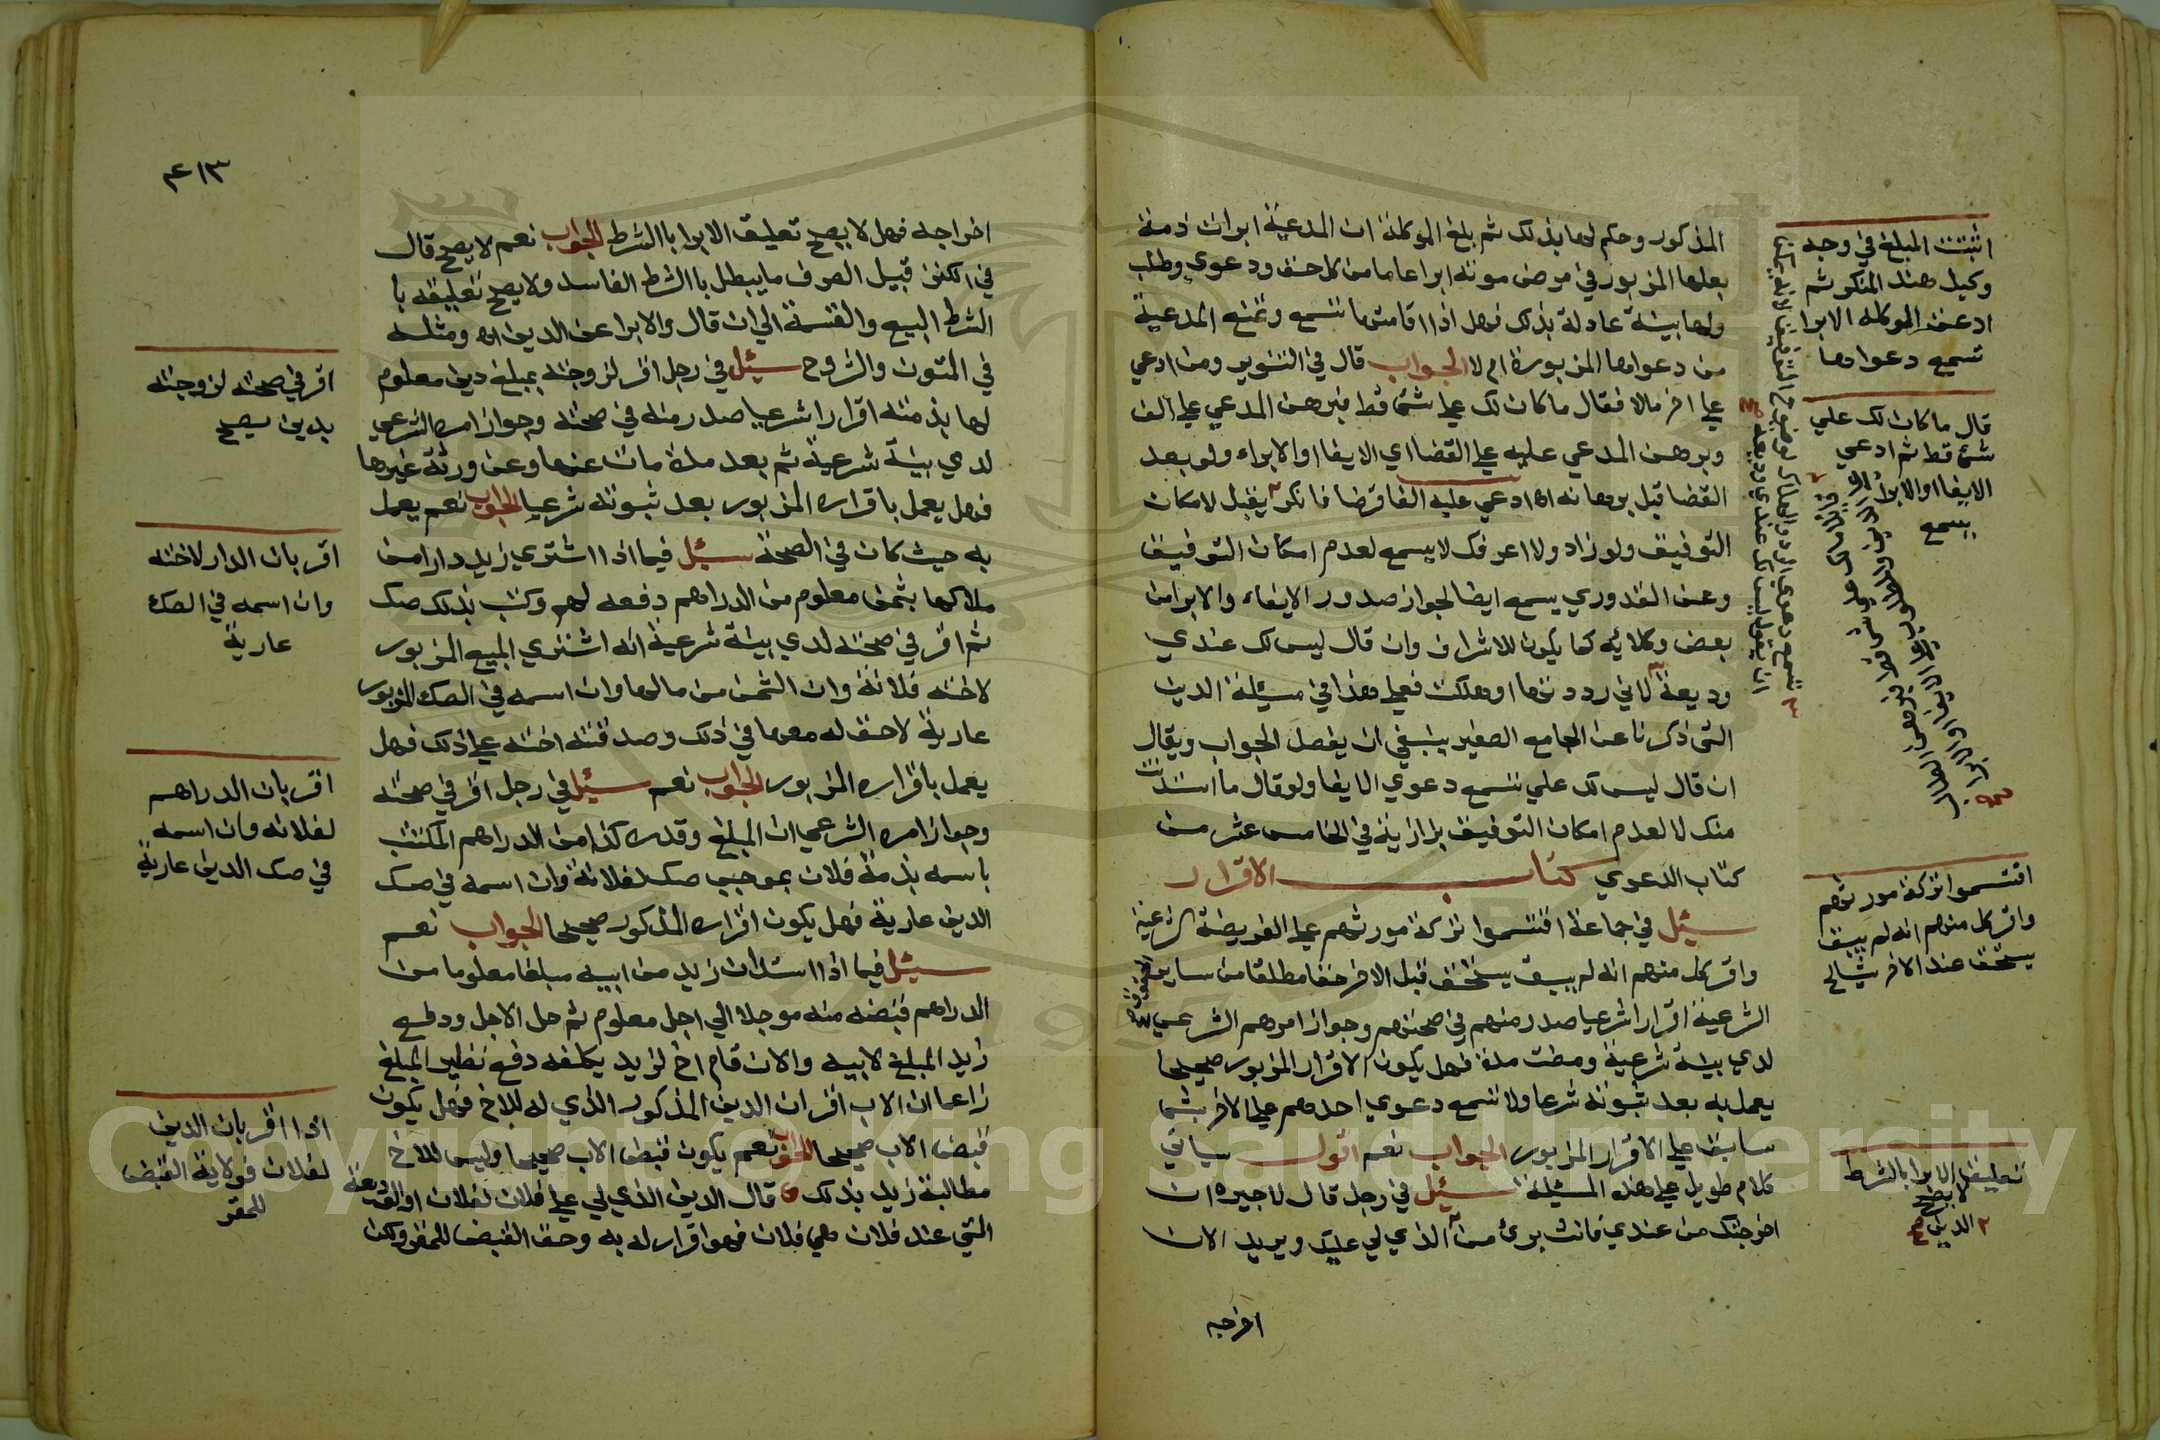 المذكور وحكم لها بذلك ثم بلغ الموكلة ان المدعية ابرات ذمة
بعلها المزبور في مرض موته ابرا عاما من كل حق ودعوي وطلب
ولها بينة عادلة بذلك فهل اذا اقامتها تسمع وتمنع المدعية
من دعواها المزبورة ام لا الجواب قال في التنوير ومن ادعي
علي اخر مالا فقال ما كان لك علي شئ قط فبرهن المدعي علي الف
وبرهن المدعي عليه علي القضا اي الايفا او الابراء ولو بعد
القضا قبل برهانه اه ادعي عليه الفا قرضا فانكر يقبل لامكان
التوفيق ولو زاد ولا اعرفك لا يسمع لعدم امكان التوفيق
وعن القدوري يسمع ايضا لجواز صدور الايفاء والابرا من
بعض وكلائه كما يكون للاشراف وان قال ليس لك عندي
وديعة لاني رددتها او هلكت فعلي هذا في مسئلة الدين
التي ذكرنا عن الجامع الصغير ينبغي ان يفصل الجواب ويقال
ان قال ليس لك علي تسمع دعوي الايفا ولو قال ما استدنت
منك لا لعدم امكان التوفيق بزازية في الخامس عشر من
كتاب الدعوي كتاب الاقرار
سئيل في جماعة اقتسموا تركة مورثهم علي الفريضة الشرعية
واقر كل منهم انه لم يبق يستحق قبل الاخر حقا مطلقا من ساير الحقوق
الشرعية اقرارا شرعيا صدر منهم في صحتهم وجواز امرهم الشرعي
لدي بينة شرعية ومضت مدة فهل يكون الاقرار المزبور صحيحا
يعمل به بعد ثبوته شرعا ولا تسمع دعوي احدهم علي الاخر بشئ
سابق علي الاقرار المزبور الجواب نعم اقول سياتي
كلام طويل علي هذه المسئلة سئيل في رجل قال لاجيره ان
اخرجتك من عندي فانت برئ من الذي لي عليك ويريد الان
اخرجه
اثبتت المبلغ في وجه
وكيل هند المنكر ثم
ادعت الموكلة الابرا
تسمع دعواها
قال ما كان لك علي
شئ قط ثم ادعي
الايفا او الابرا
يسمع
اقتسموا تركة مورثهم
واقر كل منهم انه لم يبق
يستحق عند الاخر شيا الخ
تعليق الابرا بالشرط
لا يصح
الدين صح
٣١٤
اخراجه فهل لا يصح تعليق الابرا بالشرط الجواب نعم لا يصح قال
في الكنز قبيل الصرف ما يبطل باالشرط الفاسد ولا يصح تعليقه با
الشرط البيع والقسمة الي ان قال والابرا عن الدين اه ومثله
في المتون والشروح سئيل في رجل اقر لزوجته بمبلغ دين معلوم
لها بذمته اقرارا شرعيا صدر منه في صحته وجواز امره الشرعي
لدي بينة شرعية ثم بعد مدة مات عنها وعن ورثة غيرها
فهل يعمل باقراره المزبور بعد ثبوته شرعيا الجواب نعم يعمل
به حيث كان في الصحة سئيل فيما اذا اشتري زيد دارا من
ملاكها بثمن معلوم من الدراهم دفعه لهم وكتب بذلك صك
ثم اقر في صحته لدي بينة شرعية انه اشتري المبيع المزبور
لاخته فلانة وان الثمن من مالها وان اسمه في الصك المزبور
عارية لا حق له معها في ذلك وصدقته اخته علي ذلك فهل
يعمل باقراره المزبور الجواب نعم سئيل في رجل اقر في صحته
وجواز امره الشرعي ان المبلغ وقدره كذا من الدراهم المكتتب
باسمه بذمة فلان بموجب صك لفلانة وان اسمه في صك
الدين عارية فهل يكون اقراره المذكور صحيحا الجواب نعم
سئيل فيما اذا استدان زيد من ابيه مبلغا معلوما من
الدراهم قبضه منه موجلا الي اجل معلوم ثم حل الاجل ودفع
زيد المبلغ لابيه والان قام اخ لزيد يكلفه دفع نظير المبلغ
زاعما ان الاب اقر ان الدين المذكور الذي له للاخ فهل يكون
قبض الاب صحيحا الجواب نعم يكون قبض الاب صحيحا وليس للاخ
مطالبة زيد بذلك قال الدين الذي لي علي فلان لفلان او الوديعة
التي عند فلان هي فلان فهو اقرار له به وحق القبض للمقر ولكن
اقر في صحته لزوجته
بدين يصح
اقر بان الدار لاخته
وان اسمه في الصك
عارية
اقر بان الدراهم
لفلانه وان اسمه
في صك الدين عارية
اذا اقر بان الدين
لفلان فولاية القبض
للمقر